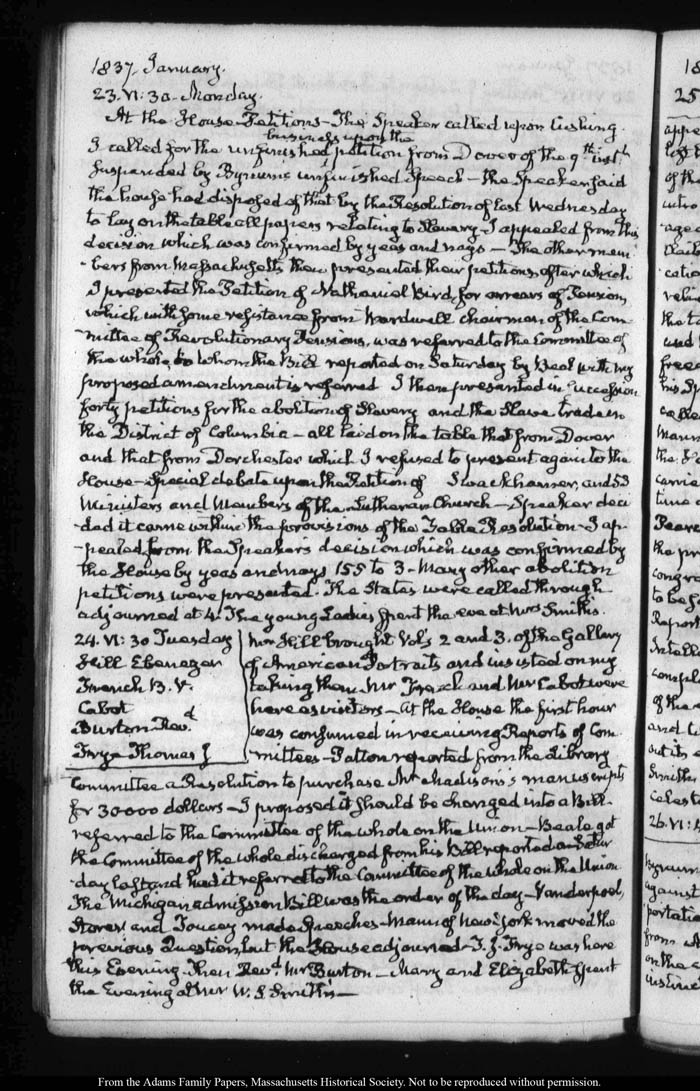 1837. January.
23. VI: 30. Monday.
At the House – Petitions – The Speaker called upon Cushing.
business upon the
I called for the unfinished petition from Dover of the 9th instt
suspended by Bynum's unfinished Speech – the Speaker said
the house had disposed of that by the Resolution of last Wednesday
to lay on the table all papers relating to Slavery – I appealed from this
decision which was confirmed by yeas and nays – The other mem
-bers from Massachusetts then presented their petitions, after which
I presented the Petition of Nathaniel Bird, for arrears of Pension,
which with some resistance from Wardwell chairman of the Com
-mittee of Revolutionary Pensions, was referred to the Committee of
the whole, to whom the Bill reported on Saturday by Beal with my
proposed amendment is referred I then presented in succession
forty petitions for the abolition of Slavery and the Slave trade in
the District of Columbia – all laid on the table that from Dover
and that from Dorchester which I refused to present again to the
House – Special debate upon the Petition of Swackhamer, and 53
Ministers and Members of the Lutheran Church – Speaker deci
-ded it came within the provisions of the Table Resolution – I ap-
-pealed from the Speaker's decision which was confirmed by
the House by yeas and nays 155 to 3 – Many other abolition
petitions were presented. The States were called through
adjourned at 4. The young Ladies spent the eve at Mrs Smith's.
24. VI: 30 Tuesday
Hill Ebenezer
French B. F.
Cabot
Burton Revd.
Frye Thomas J
Mr Hill brought Vol's 2 and 3. of the Gallery
of American Portraits and insisted on my
taking them. Mr French and Mr Cabot were
here as visitors – At the House the first hour
was consumed in receiving Reports of Com
-mittees – Patton reported from the Library
Committee a Resolution to purchase Mr Madison's manuscripts
for 30000 dollars – I proposed it should be changed into a Bill.
referred to the Committee of the whole on the Union – Beale got
the Committee of the whole discharged from his Bill reported on Satur
day last and had it referred to the Committee of the whole on the Union
The Michigan admission Bill was the order of the day – Vanderpoel,
Storer and Toucey made Speeches – Mann of New York moved the
previous Question, but the House adjourned – T. J. Frye was here
this Evening. Then Revd. Mr Burton – Mary and Elizabeth spent
the Evening at Mr W. S. Smith's –
From the Adams Family Papers, Massachusetts Historical Society. Not to be reproduced without permission.